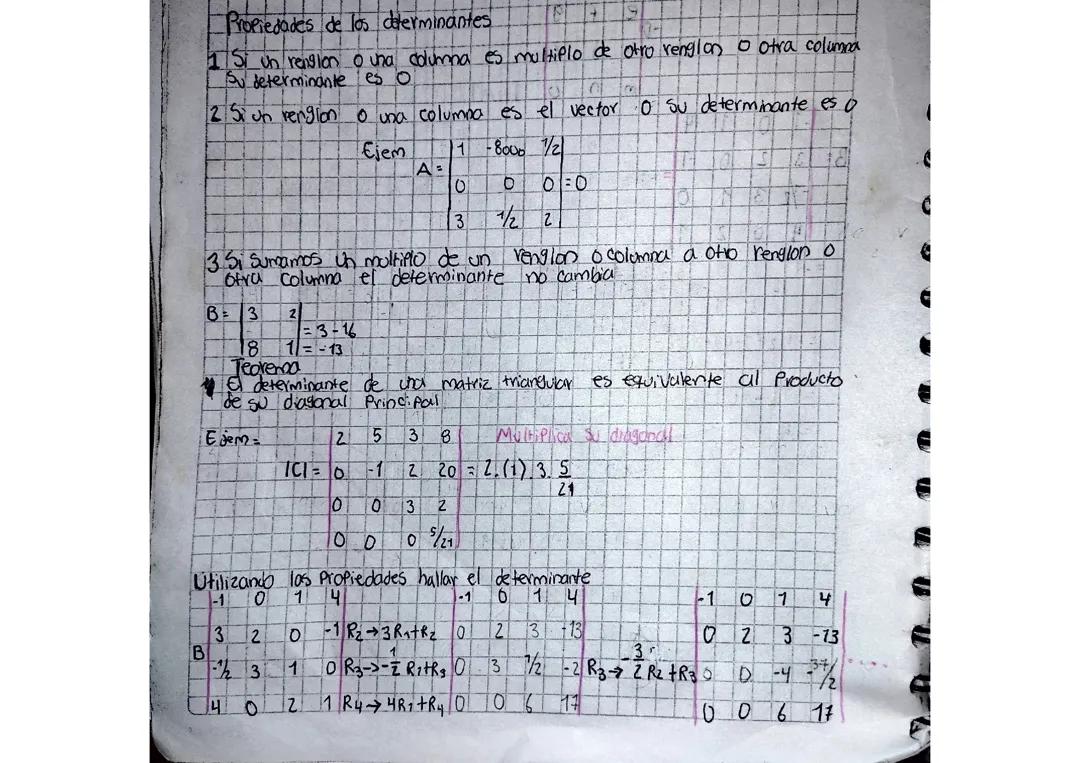 Propiedades de los determinantes
1 Si un renglon o una columna es multiplo de otro renglon o otra columna
su determinante es 0
2 Si un renglon o una columna es el vector 0 su determinante es 0
Ejem
A = |1 -8000 1/2|
|0 0 0| = 0
|3 1/2 2|
3 Si sumamos un multiplo de un renglon o columna a otro renglon o
otra columna el determinante no cambia
B = |3 2|
= 3-16
|8 1| = -13
Teorema
El determinante de una matriz triangular es equivalente al Producto
de su diagonal Principal
Ejem = |2 5 3 8| Multiplica su diagonal
|C| = |0 -1 2 20| = 2.(1).3. 5/21
|0 0 3 2|
|0 0 0 5/21|
Utilizando las Propiedades hallar el determinante
|-1 0 1 4| |-1 0 1 4| |-1 0 1 4|
|3 2 0 -1| R2→3R1+R2 |0 2 3 -13| |0 2 3 -13|
B |-1/2 3 1 0| R3→-1/2 R1+R3 |0 3 1/2 -2| R3→-3/2 R2+R3 |0 0 -4 -37/2| ....
|4 0 2 1| R4→4R1+R4 |0 0 6 17| |0 0 6 17|